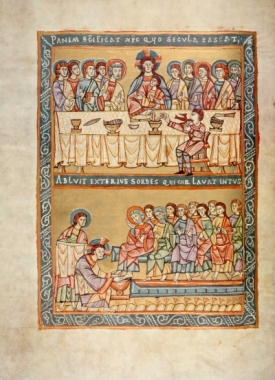 PANEM SCIFICAT QVO SECVLA PASCAT
ABLVIT EXTERIVS SORDES QVI COR LAVAT INTVS